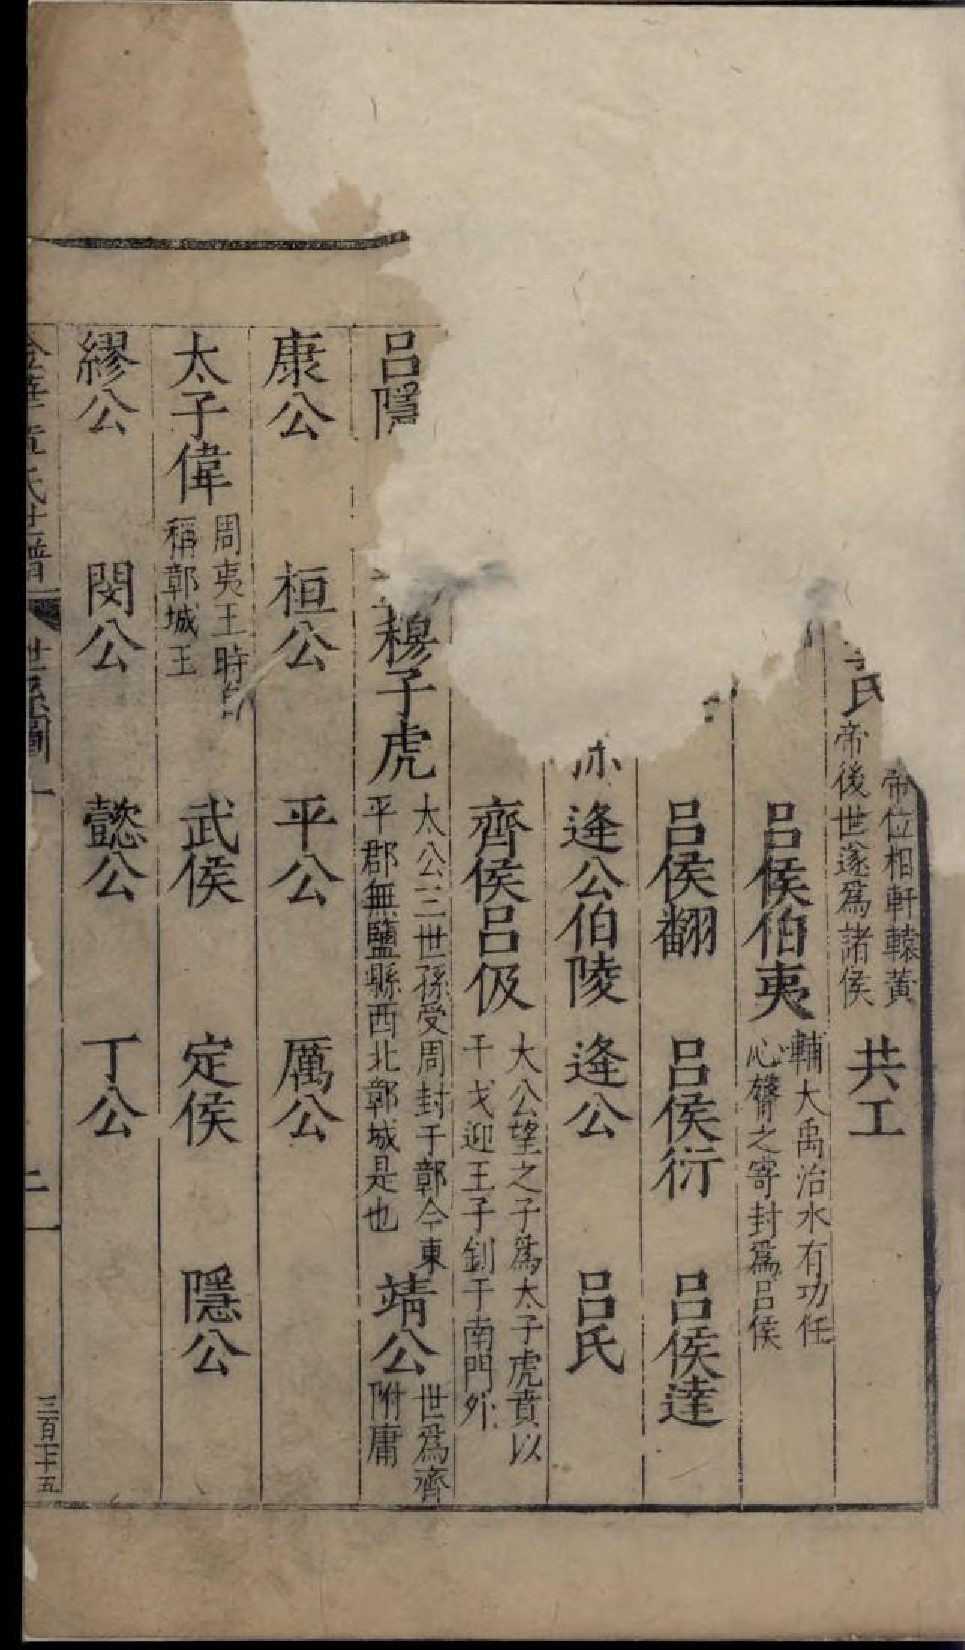 氏 帝位相軒轅黃帝後世遂為諸侯 共工
呂侯伯夷 輔大禹治水有功任心膂之寄封為呂侯
呂侯翻 呂侯衍 呂侯達
逄公伯陵 逄公 呂氏
齊侯呂伋 大公望之子為太子虎賁以干戈迎王子釗于南門外
呂隱 穆子虎 太公三世孫受周封于郭今東平郡無鹽縣西北郭城是也 靖公 世為齊附庸
康公 桓公 平公 厲公
太子偉 周夷王時稱郭城王 武侯 定侯 隱公
繆公 閔公 懿公 丁公
氏世譜 世系圖 二 三百七十五